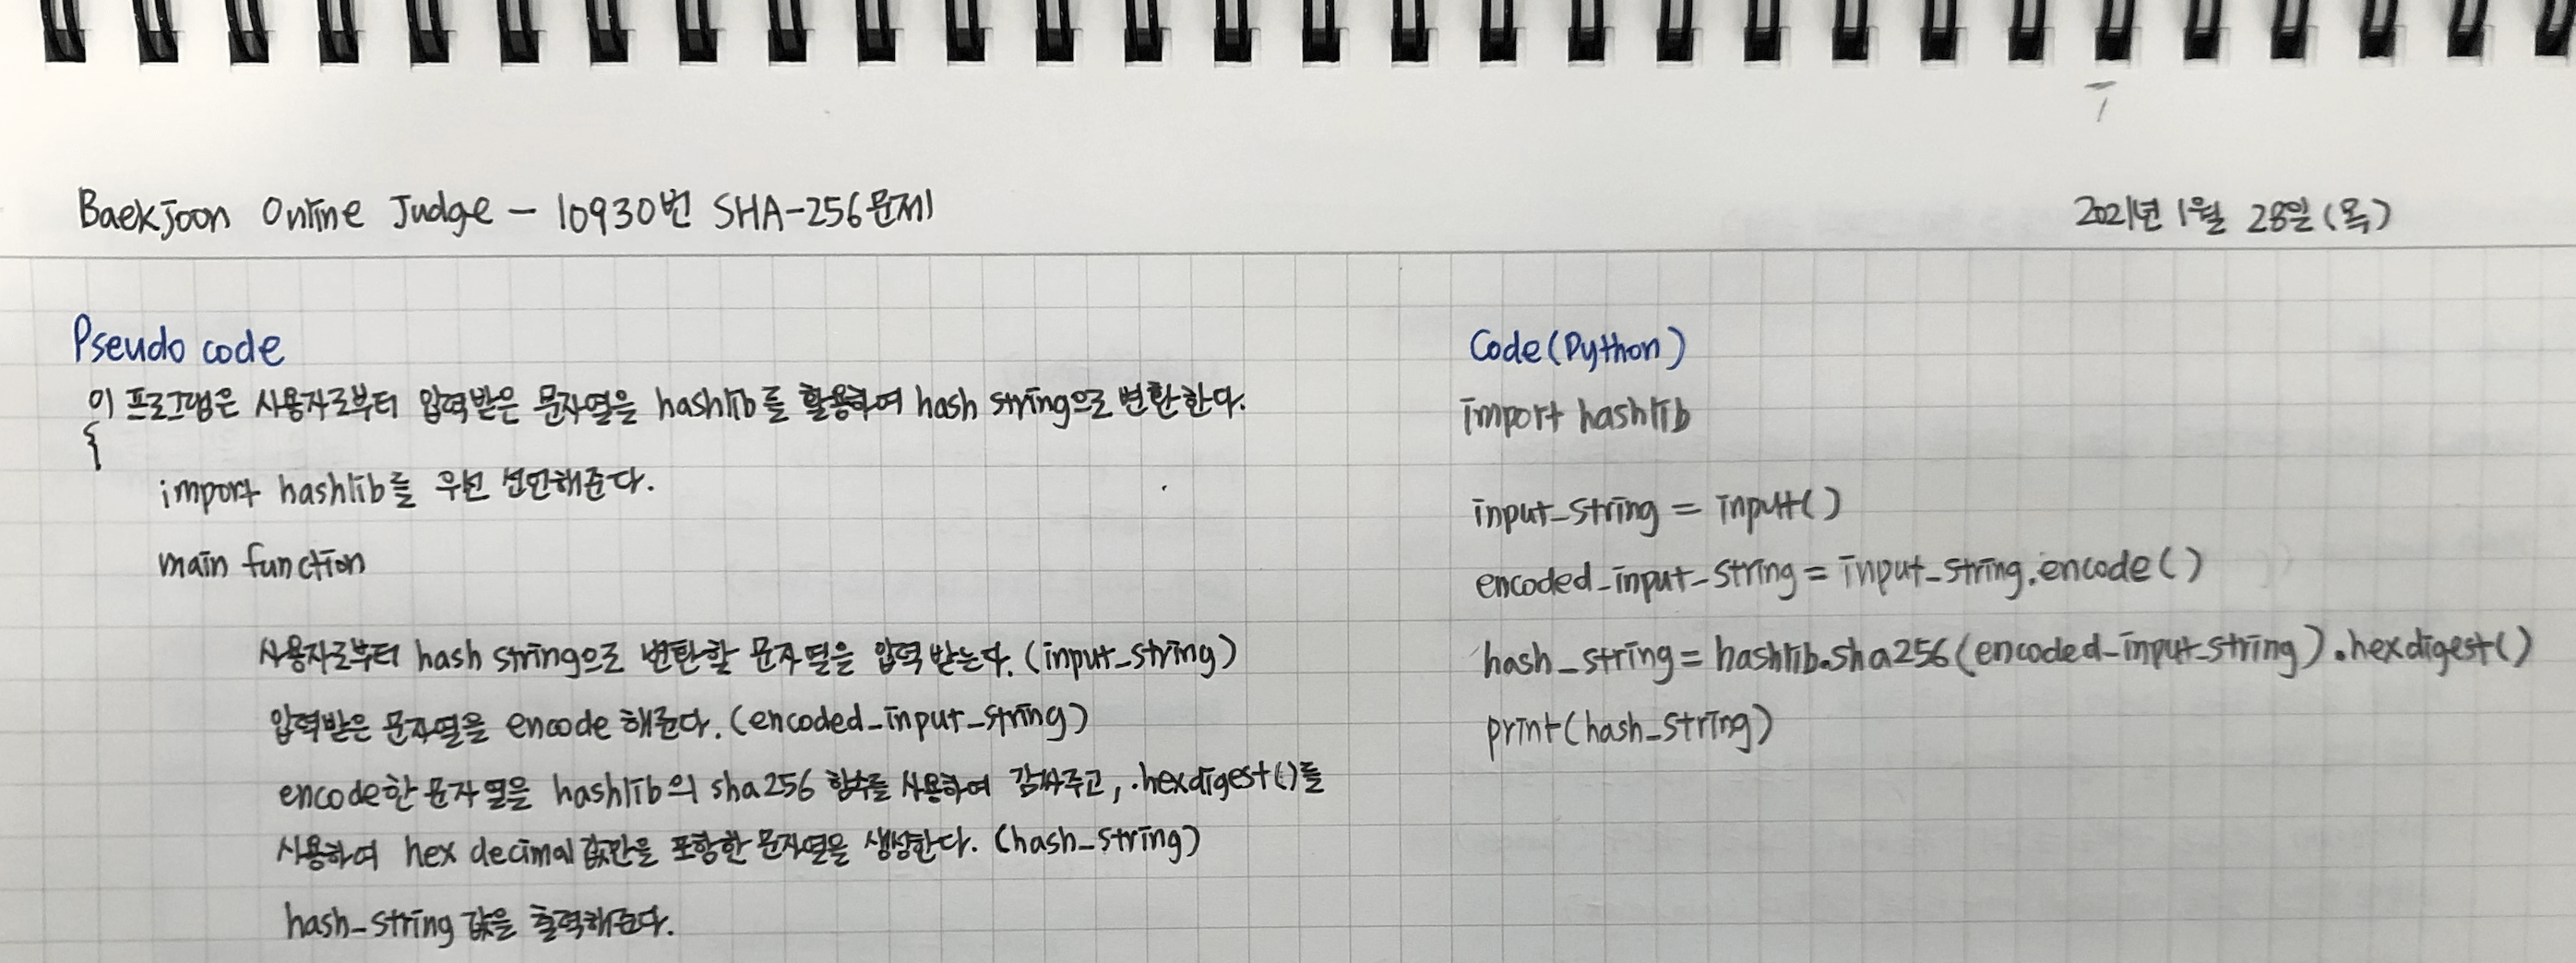 Baekjoon Online Judge - 10930번 SHA-256문제
2021년 1월 28일(목)
Pseudo code
이 프로그램은 사용자로부터 입력받은 문자열을 hashlib를 활용하여 hash string으로 변환한다.
{
import hashlib를 우선 선언해준다.
main function
사용자로부터 hash string으로 변환할 문자열을 입력 받는다. (input_string)
입력받은 문자열을 encode 해준다. (encoded_input_string)
encode한 문자열을 hashlib의 sha256 함수를 사용하여 감싸주고, .hexdigest()를
사용하여 hex decimal 값만을 포함한 문자열을 생성한다. (hash_string)
hash_string 값을 출력해준다.
Code(Python)
import hashlib
input_string = input()
encoded_input_string = input_string.encode()
hash_string = hashlib.sha256(encoded_input_string).hexdigest()
print(hash_string)